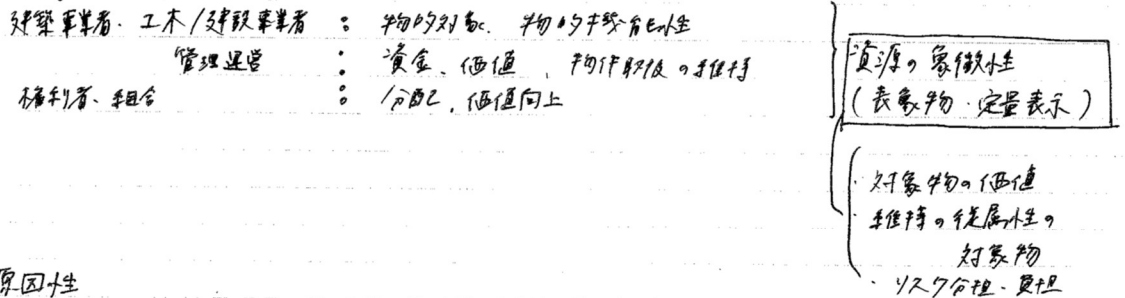 建築事業者、工木/建設事業者 : 物的対象、物的機能性
管理運営 : 資金、価値、物件取扱の維持
権利者、組合 : 分配、価値向上
資源の象徴性
(表象物・定量表示)
・対象物の価値
・維持の従属性の
対象物
・リスク分担・負担
原因性